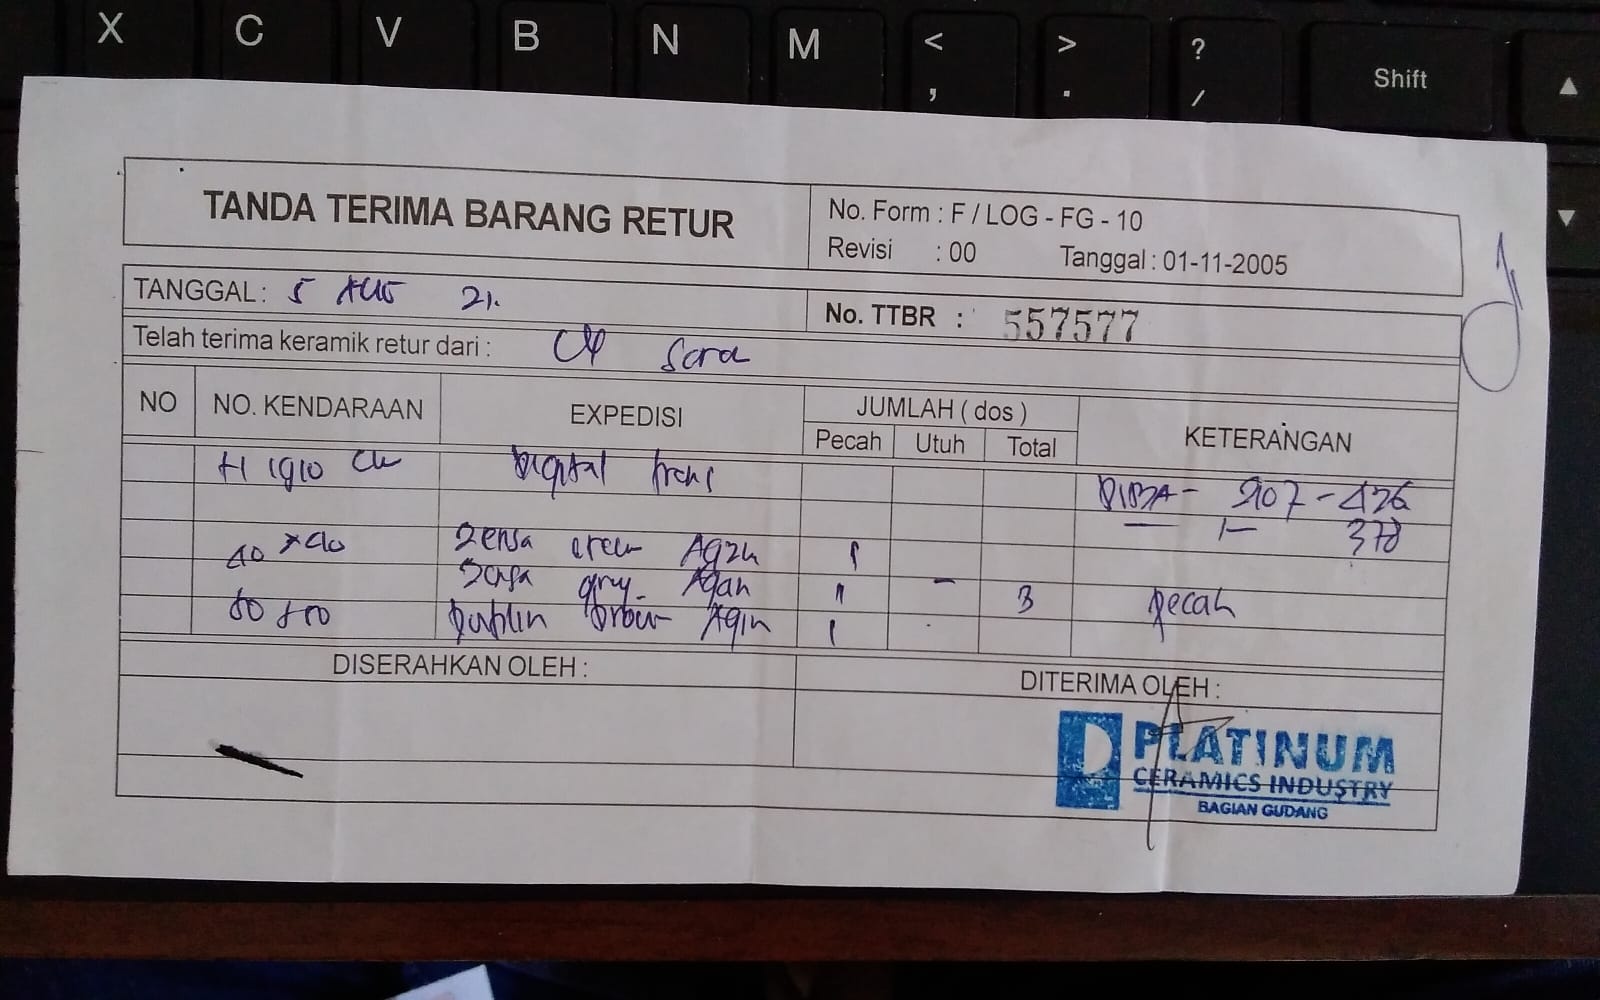 X C V B N M < > ? Shift ▲
, . / ▼
TANDA TERIMA BARANG RETUR
No. Form : F / LOG - FG - 10
Revisi : 00 Tanggal : 01-11-2005
TANGGAL : 5 AUG 21.
No. TTBR : 557577
Telah terima keramik retur dari :
NO NO. KENDARAAN EXPEDISI JUMLAH ( dos ) KETERANGAN
Pecah Utuh Total
H 1910 Digital trans
- 2107 - 426
378
40 x 40 Agan 1
Agan 1 - 3 pecah
50 x 50 Dublin 1
DISERAHKAN OLEH :
DITERIMA OLEH :
PLATINUM
CERAMICS INDUSTRY
BAGIAN GUDANG